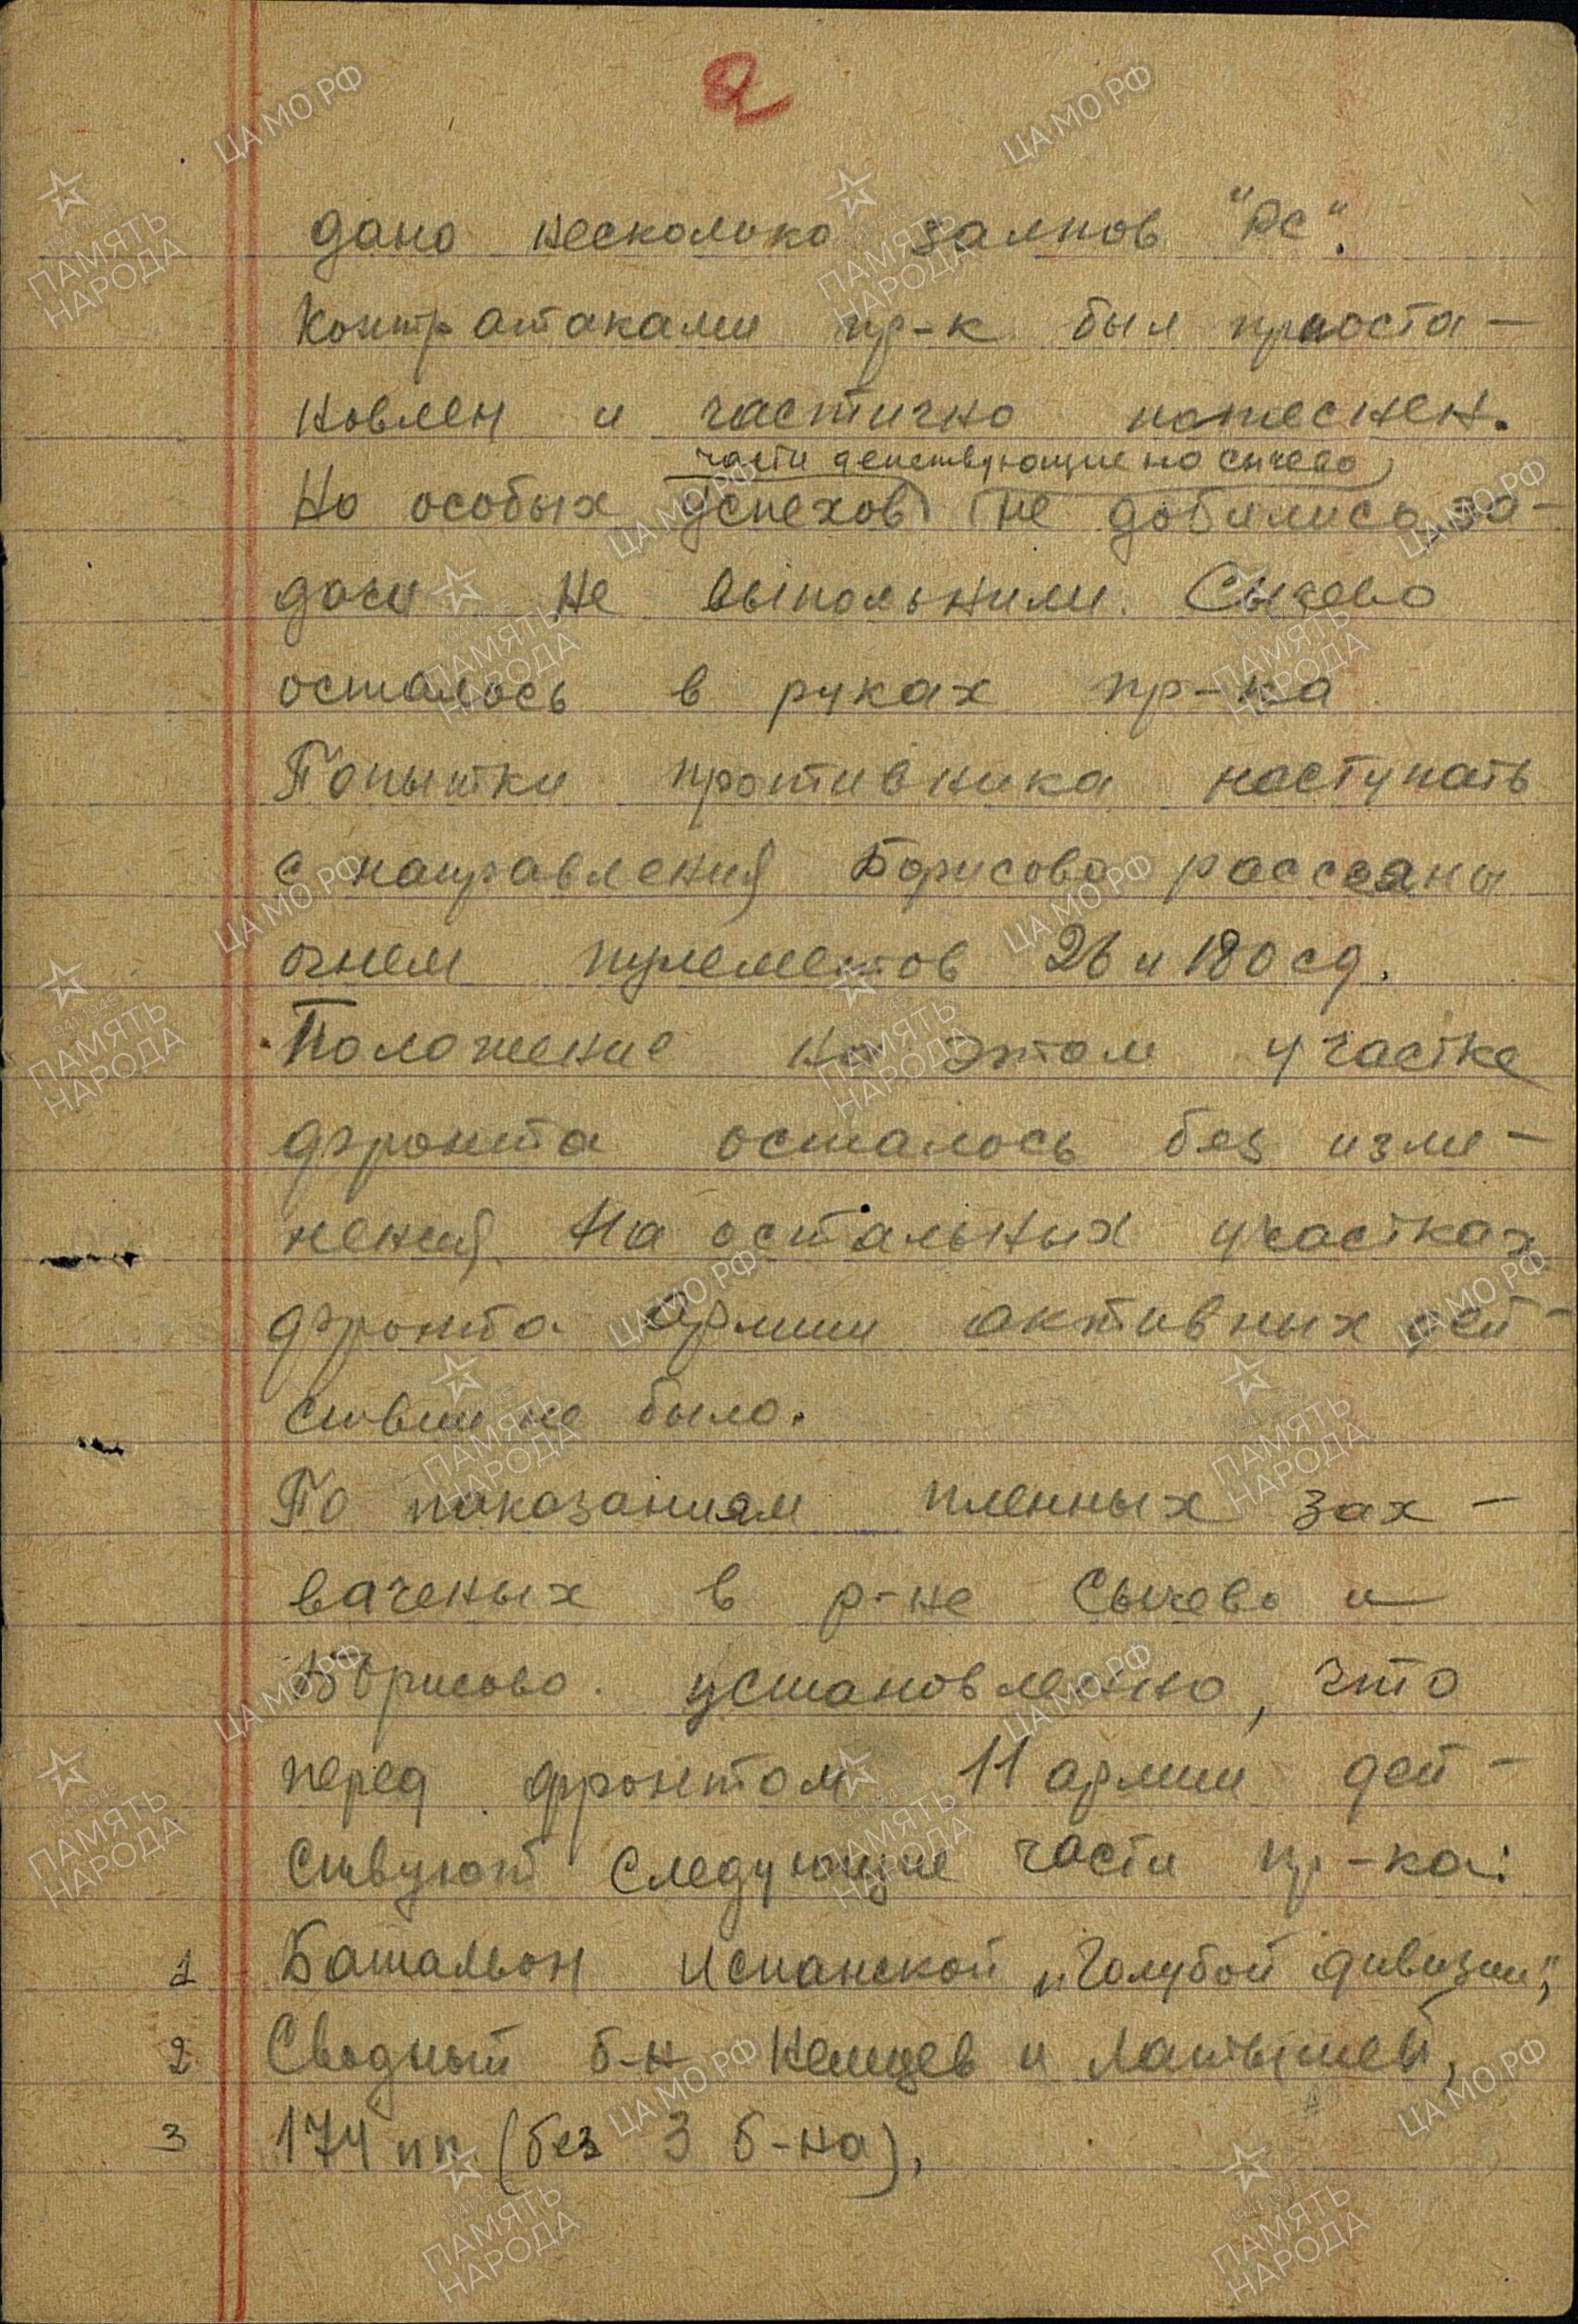 2
дано несколько залпов "РС".
Контратаками пр-к был приоста-
новлен и частично потеснен.
части действующие на Сычево
Но особых успехов не добились, за-
дачи не выпольнили. Сычево
осталось в руках пр-ка
Попытки противника наступать
с направления Борисово рассеяны
огнем пулеметов 26 и 180 сд.
Положение на этом участке
фронта осталось без изме-
нения. На остальных участках
фронта армии активных дей-
ствии не было.
По показаниям пленных зах-
ваченых в р-не Сычево и
Борисово установленно, что
перед фронтом 11 армии дей-
ствуют следующие части пр-ка:
1 Батальон испанской „Голубой дивизии",
2 Сводный б-н немцев и латышей,
3 174 пп (без 3 б-на),